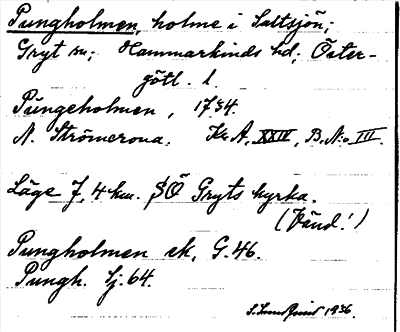 Pungholmen, holme i Saltsjön;
Gryt sn; Hammarkinds hd; Öster-
götl. l.
Pungeholmen, 1734.
N. Strömcrona. Kr. A, XXIV, B. No III.
Läge 7,4 km. SÖ Gryts kyrka.
(Vänd!)
Pungholmen ek. G. 46.
Pungh. Sj. 64.
1936.